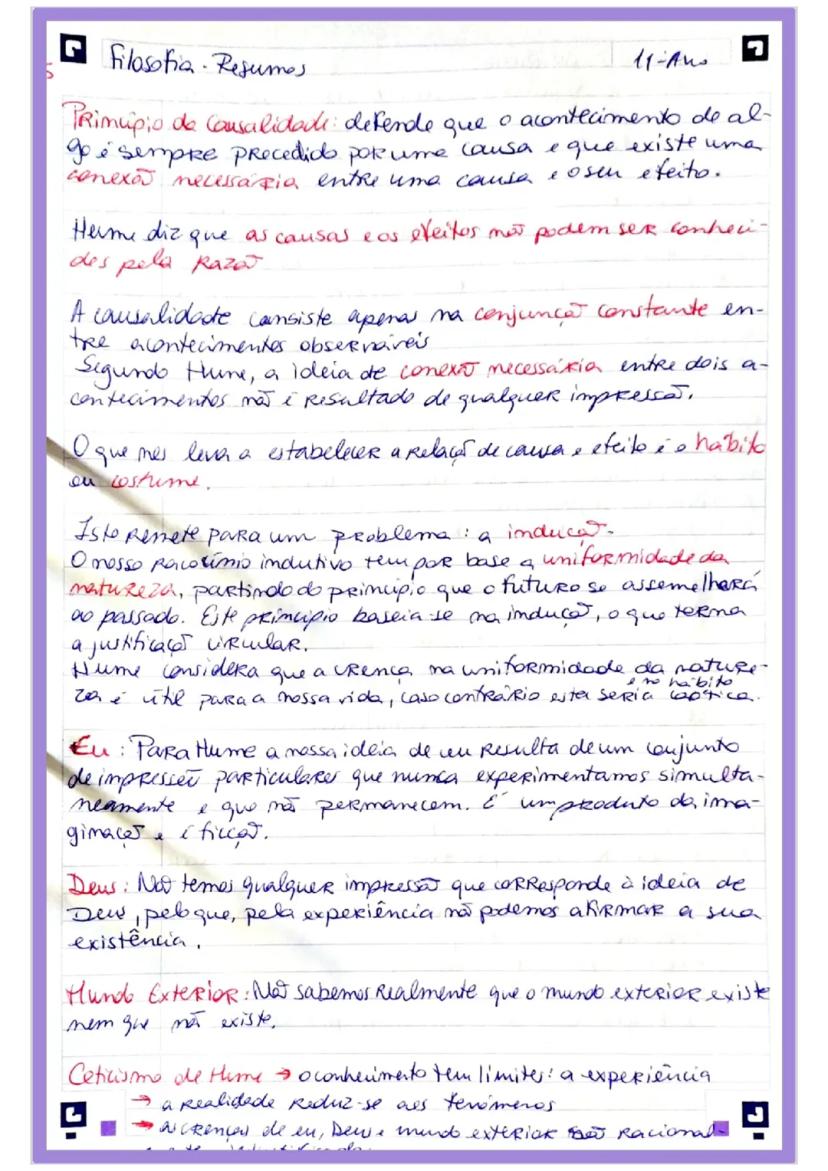 Filosofia - Resumos 11º Ano
Princípio da Causalidade: defende que o acontecimento de al-
go é sempre precedido por uma causa e que existe uma
conexão necessária entre uma causa e o seu efeito.
Hume diz que as causas e os efeitos não podem ser conheci-
dos pela razão
A causalidade consiste apenas na conjunção constante en-
tre acontecimentos observáveis
Segundo Hume, a ideia de conexão necessária entre dois a-
contecimentos não é resultado de qualquer impressão.
O que nos leva a estabelecer a relação de causa e efeito é o hábito
ou costume.
Isto remete para um problema: a indução.
O nosso raciocínio indutivo tem por base a uniformidade da
natureza, partindo do princípio que o futuro se assemelhará
ao passado. Este princípio baseia-se na indução, o que torna
a justificação circular.
Hume considera que a crença na uniformidade da nature-
e no hábito
za é útil para a nossa vida, caso contrário esta seria caótica.
Eu: Para Hume a nossa ideia de eu resulta de um conjunto
de impressões particulares que nunca experimentamos simulta-
neamente e que não permanecem. É um produto da ima-
ginação e é ficção.
Deus: Não temos qualquer impressão que corresponde à ideia de
Deus, pelo que, pela experiência não podemos afirmar a sua
existência.
Mundo Exterior: Não sabemos realmente que o mundo exterior existe
nem que não existe.
Ceticismo de Hume → o conhecimento tem limites: a experiência
→ a realidade reduz-se aos fenómenos
→ as crenças de eu, Deus e mundo exterior são racional-